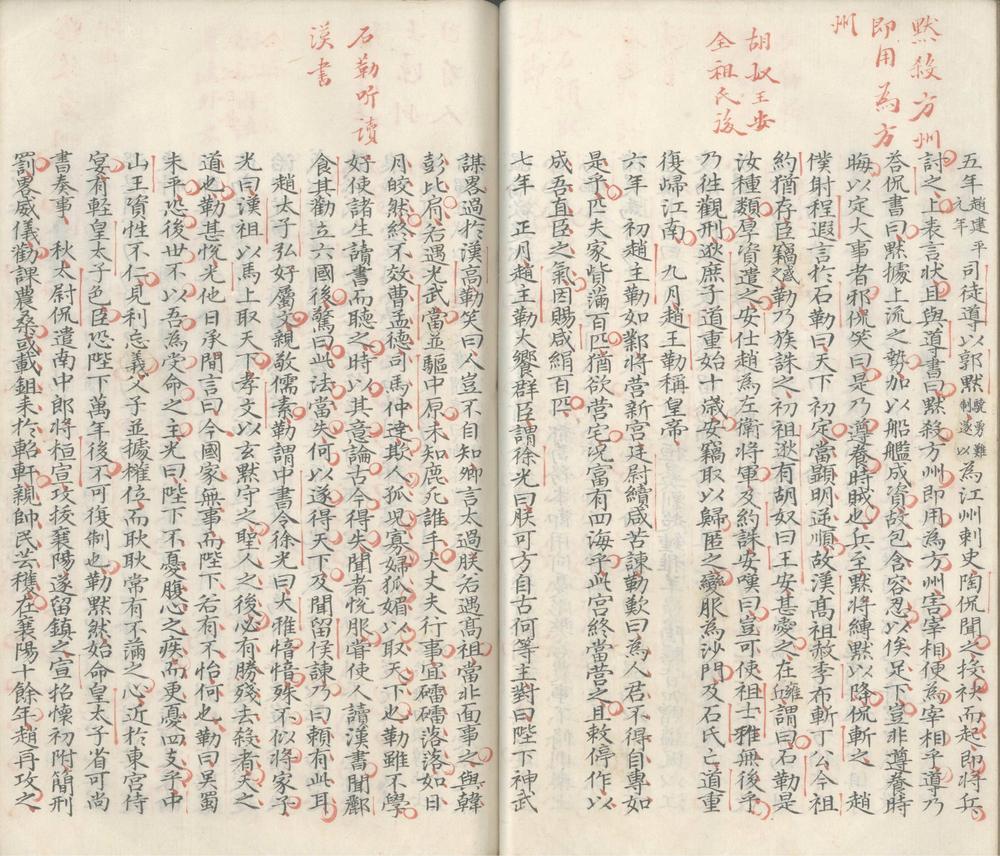 默殺方州
即用為方
州
胡奴王安
全祖氏後
五年趙建平元年司徒導以郭默驍勇難制遂以為江州刺史陶侃聞之投袂而起即將兵
討之上表言狀且與導書曰默殺方州即用為方州害宰相便為宰相乎導乃
荅侃書曰默據上流之勢加以船艦成資故包含容忍以俟足下豈非遵養時
晦以定大事者邪侃笑曰是乃遵養時賊也兵至默將縛默以降侃斬之 趙
僕射程遐言於石勒曰天下初定當顯明逆順故漢高祖赦季布斬丁公今祖
約猶存臣竊惑勒乃族誅之初祖逖有胡奴曰王安甚愛之在雍謂曰石勒是
汝種類厚資遣之安仕趙為左衛將軍及約誅安嘆曰豈可使祖士雅無後乎
乃往觀刑逖庶子道重始十歲安竊取以歸匿之變服為沙門及石氏亡道重
復歸江南 九月趙王勒稱皇帝
六年 初趙主勒如鄴將营新宮廷尉續咸苦諫勒歎曰為人君不得自專如
是乎匹夫家貲滿百匹猶欲营宅况富有四海乎此宮終當营之且敕停作以
成吾直臣之氣因賜咸絹百匹
七年 正月趙主勒大饗群臣謂徐光曰朕可方自古何等主對曰陛下神武
石勒听读
漢書
謀畧過於漢高勒笑曰人豈不自知卿言太過朕若遇高祖當北面事之與韓
彭比肩若遇光武當並驅中原未知鹿死誰手大丈夫行事宜礌礌落落如日
月皎然終不效曹孟德司馬仲達欺人孤児寡婦狐媚以取天下也勒雖不學
好使諸生讀書而聽之時以其意論古今得失聞者悅服嘗使人讀漢書聞酈
食其勸立六國後驚曰此法當失何以遂得天下及聞留侯諫乃曰賴有此耳
趙太子弘好屬文親敬儒素勒謂中書令徐光曰大雅愔愔殊不似將家子
光曰漢祖以馬上取天下孝文以玄默守之聖人之後必有勝殘去殺者天之
道也勒甚悅光他日承間言曰今國家無事而陛下若有不怡何也勒曰吳蜀
未平恐後世不以吾為受命之主光曰陛下不憂腹心之疾而更憂四支乎中
山王資性不仁見利忘義父子並據權位而耿耿常有不滿之心近於東宮侍
宴有軽皇太子色臣恐陛下萬年後不可復制也勒默然始命皇太子省可尚
書奏事 秋太尉侃遣南中郎將桓宣攻拔襄陽遂留鎮之宣招懷初附簡刑
罰畧威儀勸課農桑或載鉏耒於軺軒親帥民芸穫在襄陽十餘年趙再攻之